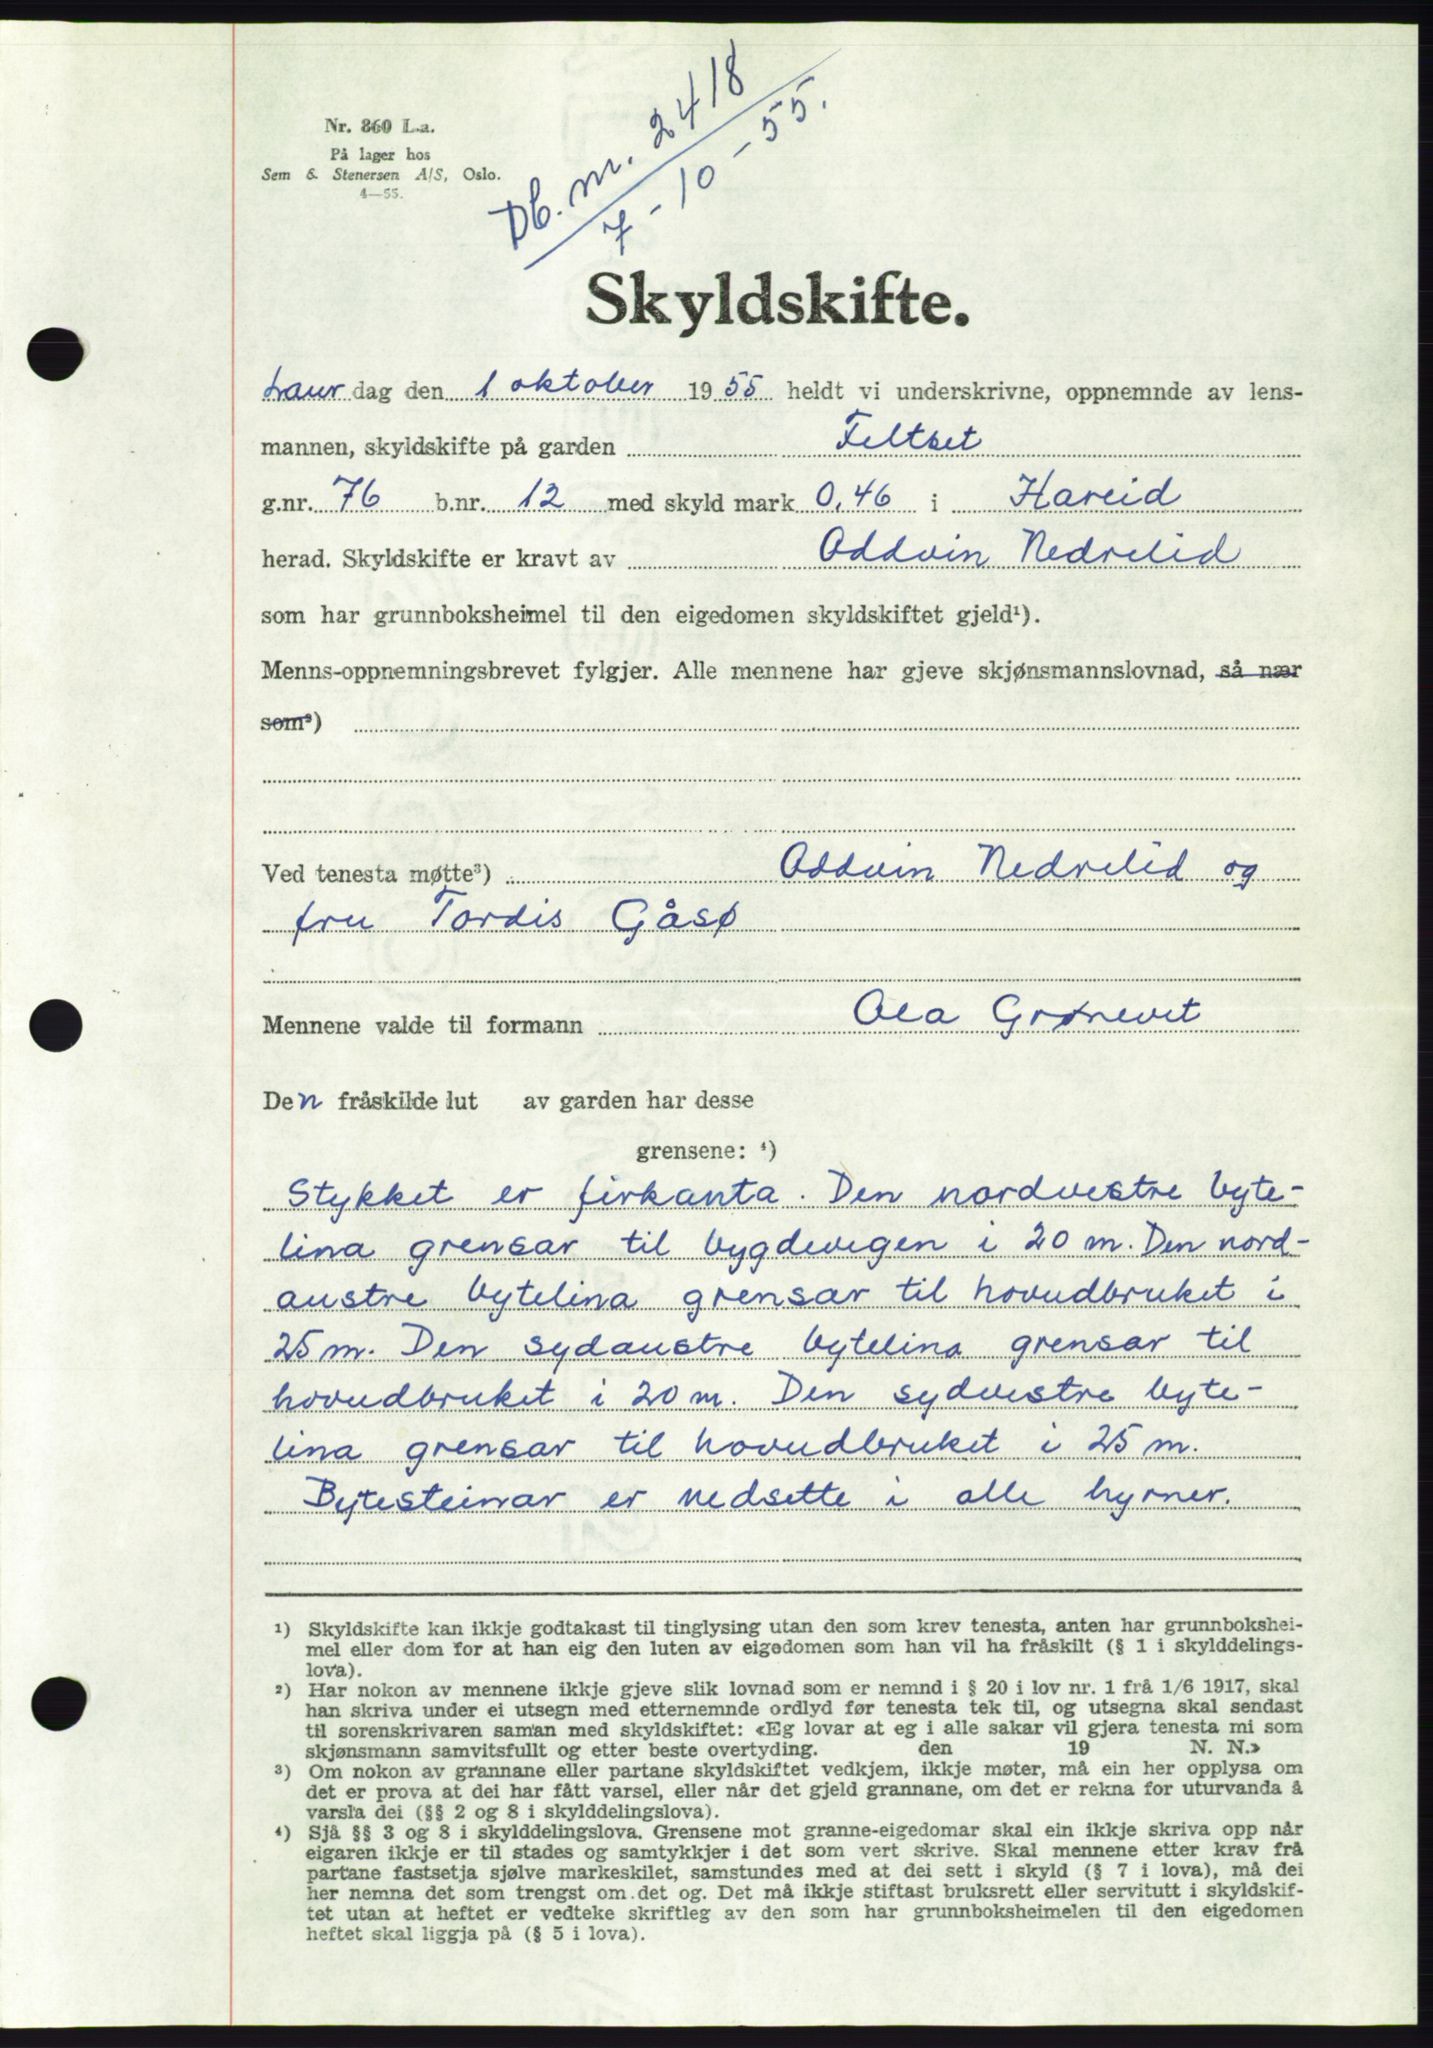 Nr. 860 L.a.
På lager hos
Sem & Stenersen A/S, Oslo.
4—55.
Db. nr. 2418
7-10-55.
Skyldskifte.
Laur dag den 1 oktober 1955 heldt vi underskrivne, oppnemnde av lens-
mannen, skyldskifte på garden Feltset
g.nr. 76 b.nr. 12 med skyld mark 0,46 i Hareid
herad. Skyldskifte er kravt av Oddvin Nedrelid
som har grunnboksheimel til den eigedomen skyldskiftet gjeld¹).
Menns-oppnemningsbrevet fylgjer. Alle mennene har gjeve skjønsmannslovnad, så nær
som²)
Ved tenesta møtte³) Oddvin Nedrelid og
fru Tordis Gåsø
Mennene valde til formann Ola Grønevet
Den fråskilde lut av garden har desse
grensene: ⁴)
Stykket er firkanta. Den nordvestre byte-
lina grensar til bygdevegen i 20 m. Den nord-
austre bytelina grensar til hovudbruket i
25 m. Den sydaustre bytelina grensar til
hovudbruket i 20 m. Den sydvestre byte-
lina grensar til hovudbruket i 25 m.
Bytesteinar er nedsette i alle hyrner.
¹) Skyldskifte kan ikkje godtakast til tinglysing utan den som krev tenesta, anten har grunnbokshei-
mel eller dom for at han eig den luten av eigedomen som han vil ha fråskilt (§ 1 i skylddelings-
lova).
²) Har nokon av mennene ikkje gjeve slik lovnad som er nemnd i § 20 i lov nr. 1 frå 1/6 1917, skal
han skriva under ei utsegn med etternemnde ordlyd før tenesta tek til, og utsegna skal sendast
til sorenskrivaren saman med skyldskiftet: «Eg lovar at eg i alle sakar vil gjera tenesta mi som
skjønsmann samvitsfullt og etter beste overtyding. den 19 N. N.»
³) Om nokon av grannane eller partane skyldskiftet vedkjem, ikkje møter, må ein her opplysa om
det er prova at dei har fått varsel, eller når det gjeld grannane, om det er rekna for uturvanda å
varsla dei (§§ 2 og 8 i skylddelingslova).
⁴) Sjå §§ 3 og 8 i skylddelingslova. Grensene mot granne-eigedomar skal ein ikkje skriva opp når
eigaren ikkje er til stades og samtykkjer i det som vert skrive. Skal mennene etter krav frå
partane fastsetja sjølve markeskilet, samstundes med at dei sett i skyld (§ 7 i lova), må dei
her nemna det som trengst om det og. Det må ikkje stiftast bruksrett eller servitutt i skyldskif-
tet utan at heftet er vedteke skriftleg av den som har grunnboksheimelen til den eigedomen
heftet skal liggja på (§ 5 i lova).